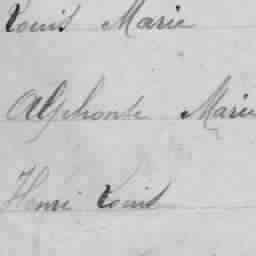 Louis Marie
Alphonse Marie
Henri Louis